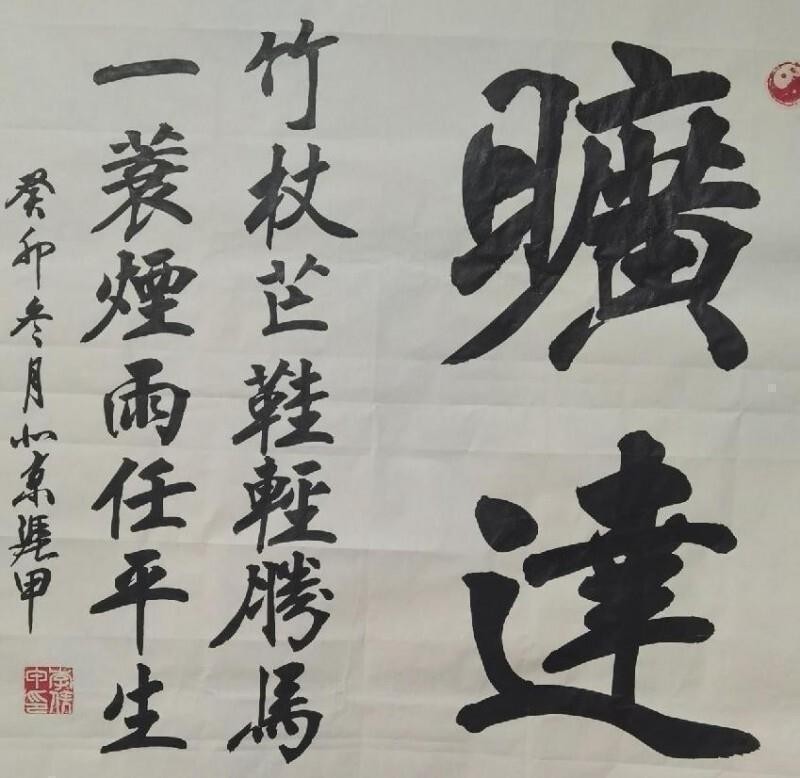 曠達
竹杖芒鞋輕勝馬
一蓑煙雨任平生
癸卯冬月北京
甲